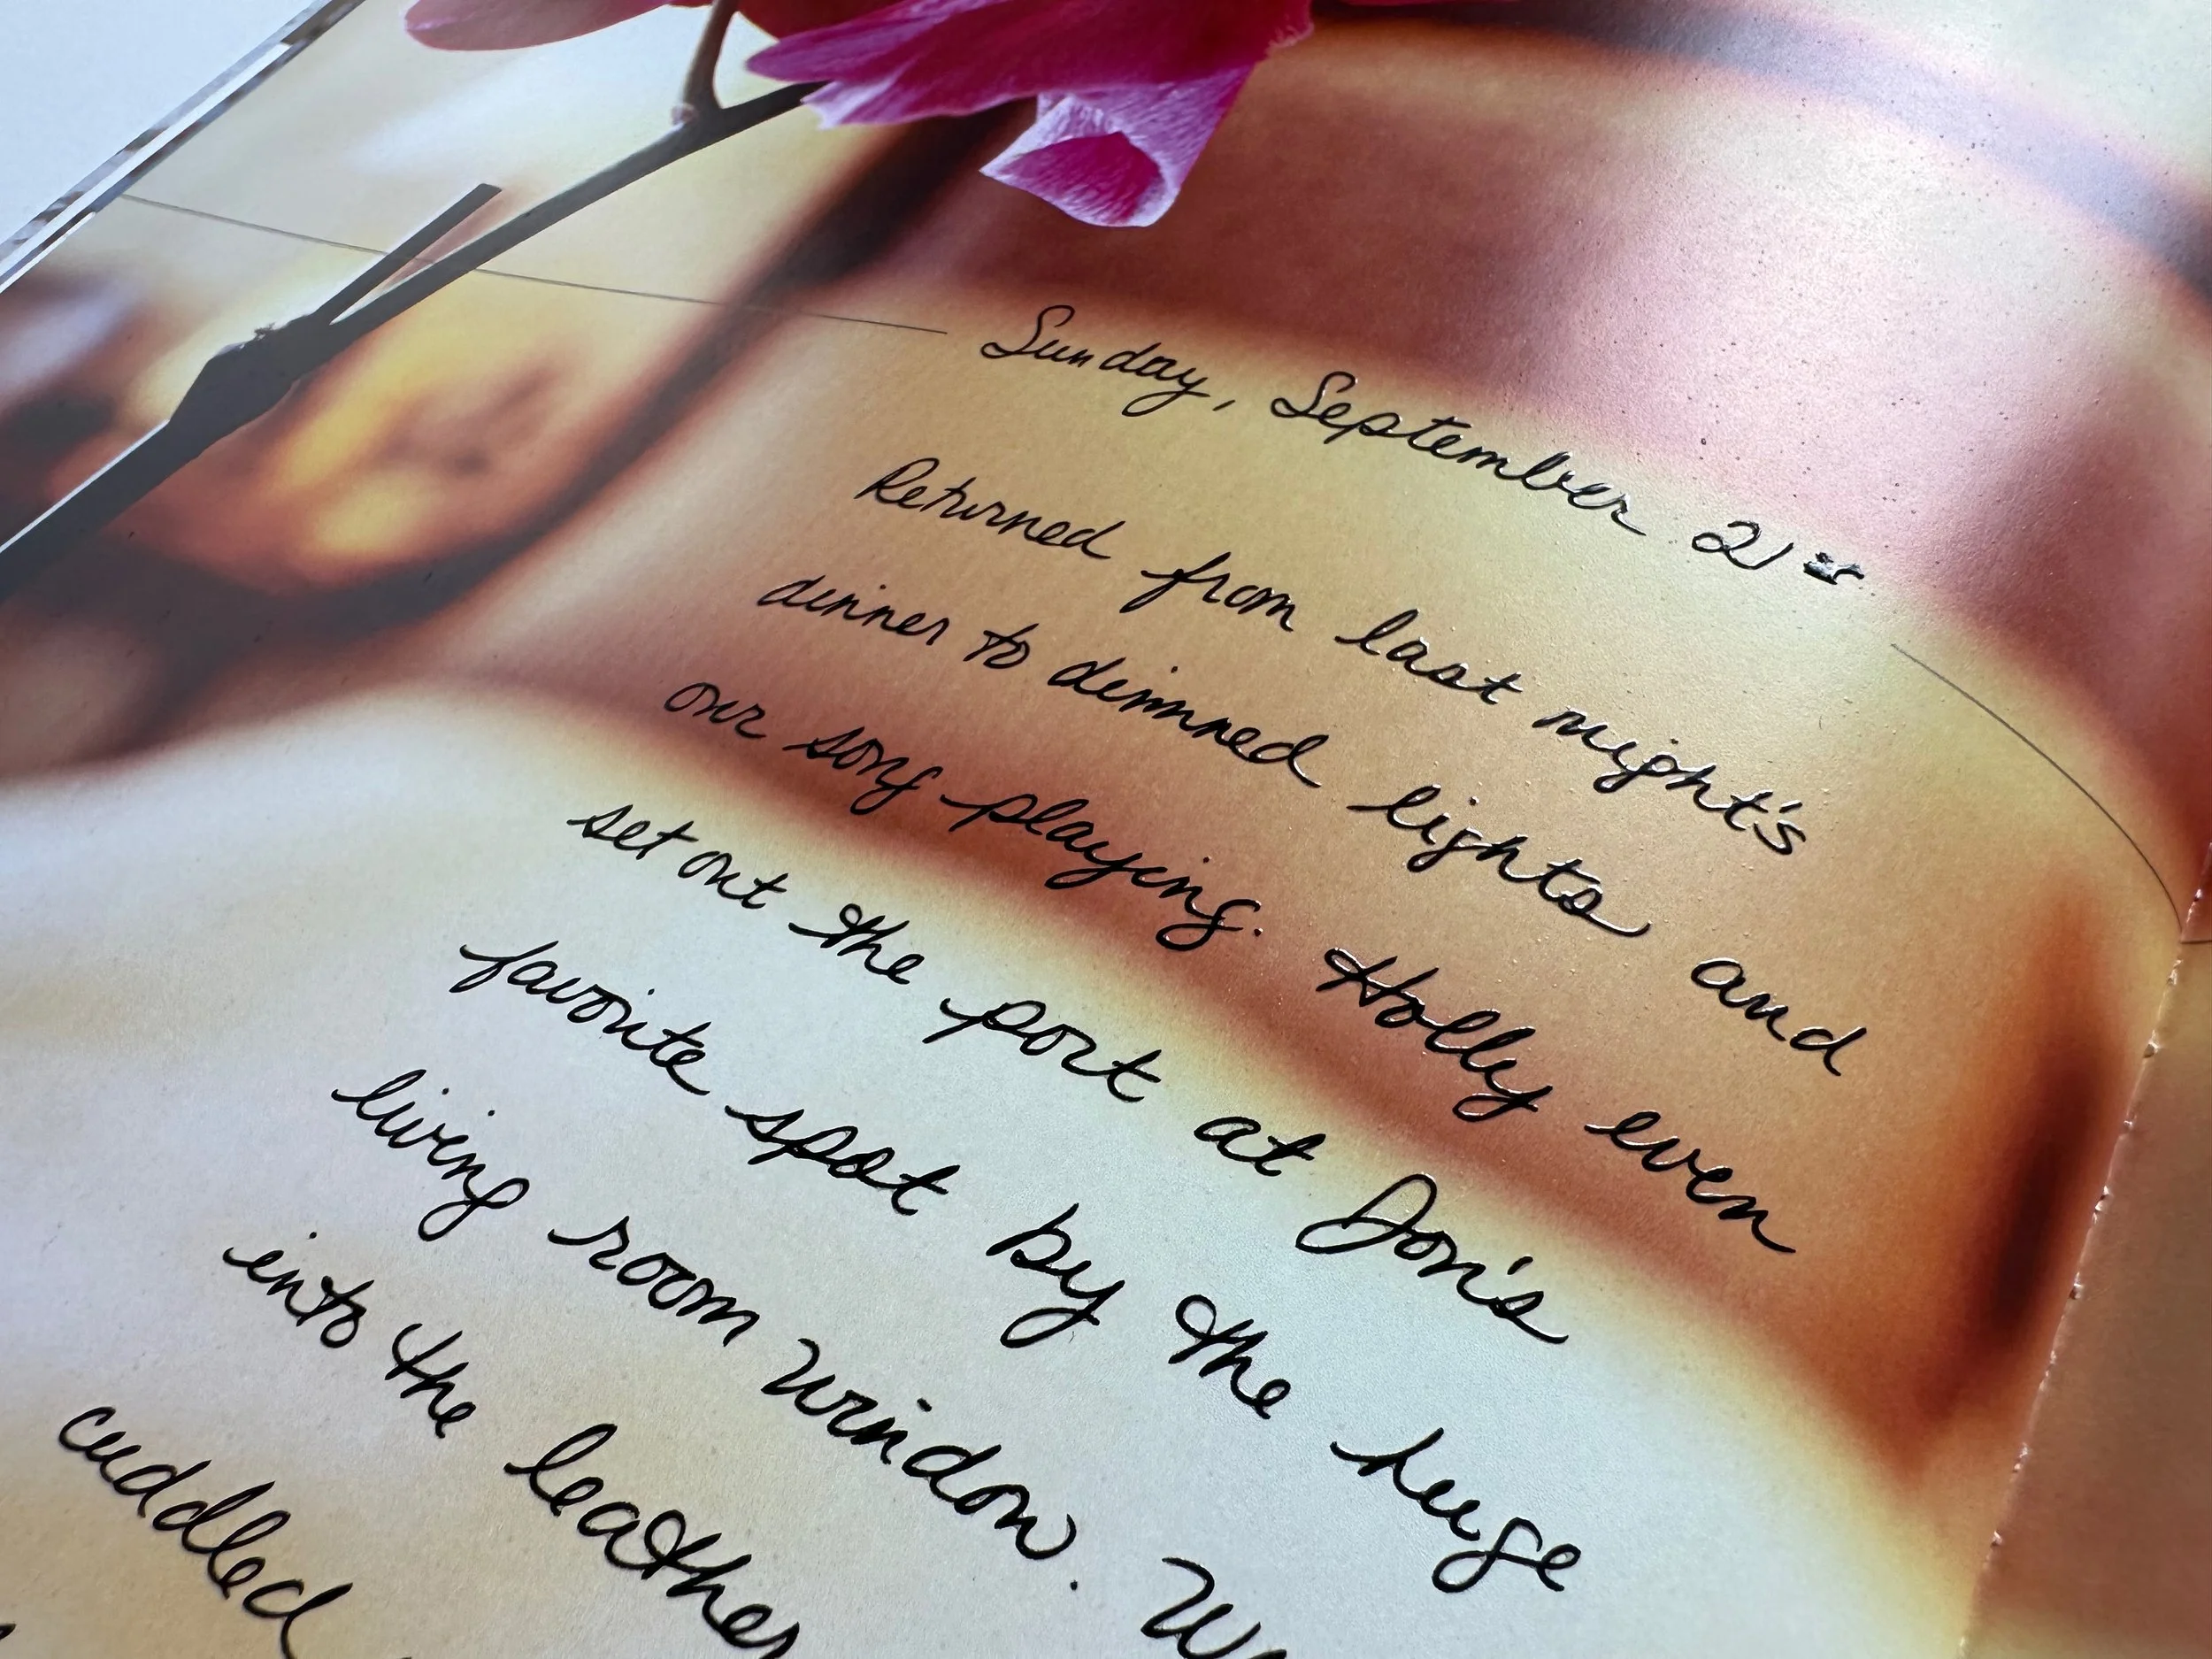 Sunday, September 21st
Returned from last night's
dinner to dimmed lights and
our song playing. Holly even
set out the port at Jon's
favorite spot by the huge
living room window.
into the leather
cuddled